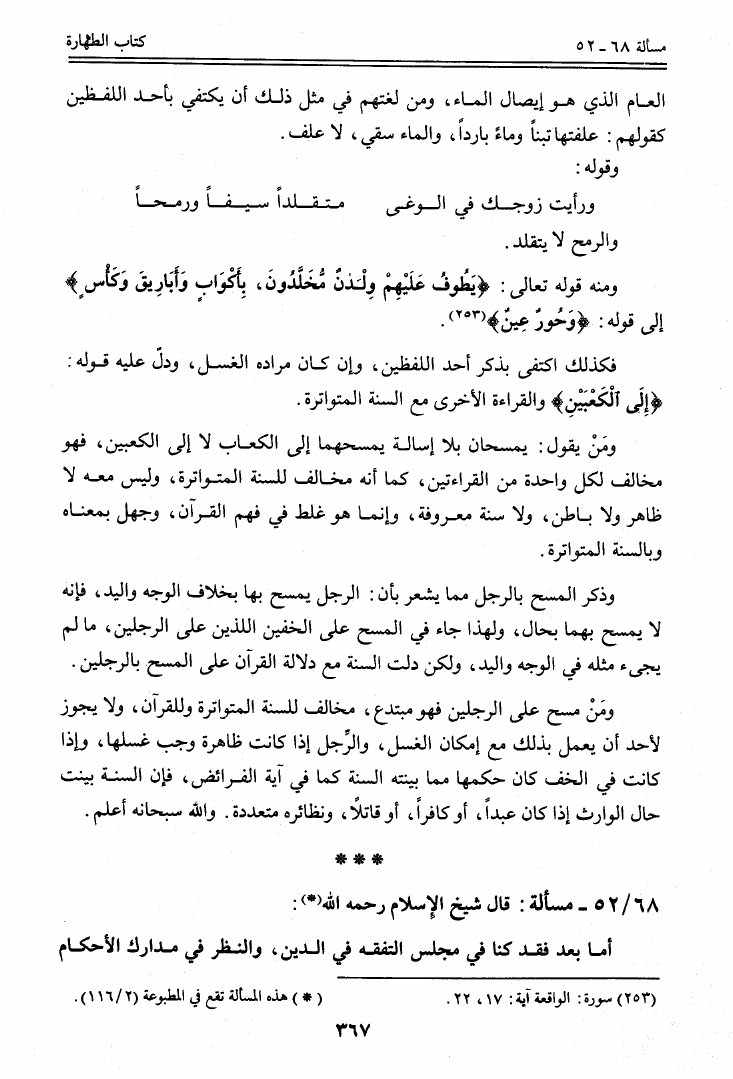 مسألة ٦٨ - ٥٢ كتاب الطهارة
العام الذي هو إيصال الماء، ومن لغتهم في مثل ذلك أن يكتفي بأحد اللفظين
كقولهم: علفتها تبناً وماءً بارداً، والماء سقي، لا علف.
وقوله:
ورأيت زوجك في الوغى متقلداً سيفاً ورمحاً
والرمح لا يتقلد.
ومنه قوله تعالى: ﴿يَطُوفُ عَلَيْهِمْ وِلْدَٰنٌ مُّخَلَّدُونَ، بِأَكْوَابٍ وَأَبَارِيقَ وَكَأْسٍ﴾
إلى قوله: ﴿وَحُورٌ عِينٌ﴾(٢٥٣).
فكذلك اكتفى بذكر أحد اللفظين، وإن كان مراده الغسل، ودلّ عليه قوله:
﴿إِلَى ٱلْكَعْبَيْنِ﴾ والقراءة الأخرى مع السنة المتواترة.
ومَنْ يقول: يمسحان بلا إسالة يمسحهما إلى الكعاب لا إلى الكعبين، فهو
مخالف لكل واحدة من القراءتين، كما أنه مخالف للسنة المتواترة، وليس معه لا
ظاهر ولا باطن، ولا سنة معروفة، وإنما هو غلط في فهم القرآن، وجهل بمعناه
وبالسنة المتواترة.
وذكر المسح بالرجل مما يشعر بأن: الرجل يمسح بها بخلاف الوجه واليد، فإنه
لا يمسح بهما بحال، ولهذا جاء في المسح على الخفين اللذين على الرجلين، ما لم
يجيء مثله في الوجه واليد، ولكن دلت السنة مع دلالة القرآن على المسح بالرجلين.
ومَنْ مسح على الرجلين فهو مبتدع، مخالف للسنة المتواترة وللقرآن، ولا يجوز
لأحد أن يعمل بذلك مع إمكان الغسل، والرِّجل إذا كانت ظاهرة وجب غسلها، وإذا
كانت في الخف كان حكمها مما بينته السنة كما في آية الفرائض، فإن السنة بينت
حال الوارث إذا كان عبداً، أو كافراً، أو قاتلاً، ونظائره متعددة. والله سبحانه أعلم.
***
٥٢/٦٨ - مسألة: قال شيخ الإسلام رحمه الله(*):
أما بعد فقد كنا في مجلس التفقه في الدين، والنظر في مدارك الأحكام
(٢٥٣) سورة: الواقعة آية: ١٧، ٢٢. (*) هذه المسألة تقع في المطبوعة (١١٦/٢).
٣٦٧